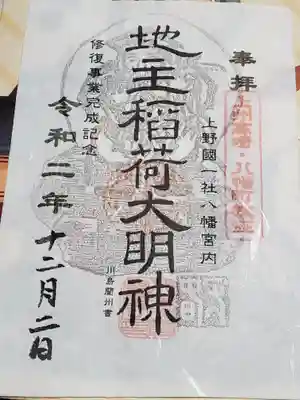 奉拝
上野國一社八幡宮内
地主稲荷大明神
川島蘭州書
修復事業完成記念
令和二年十二月二日